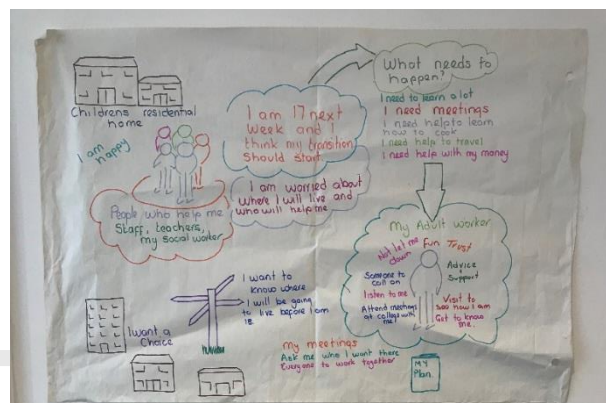 Childrens residential
home
I am
happy
People who help me
Staff, teachers,
my social worker
I am 17 next
week and I
think my transition
should start
I am worried about
where I will live and
who will help me
What needs to
happen?
I need to learn a lot
I need meetings
I need help to learn
how to cook
I need help to travel
I need help with my money
My Adult worker
Not let me
down
Fun
Trust
Someone to
call on
Advice
+
Support
listen to me
Attend meetings
at college with
me
Visit to
see how I am
Get to know
me.
I want a
Choice
I want to
know where
I will be going
to live before I am
18
My meetings
Ask me who I want there
Everyone to work together
MY
Plan